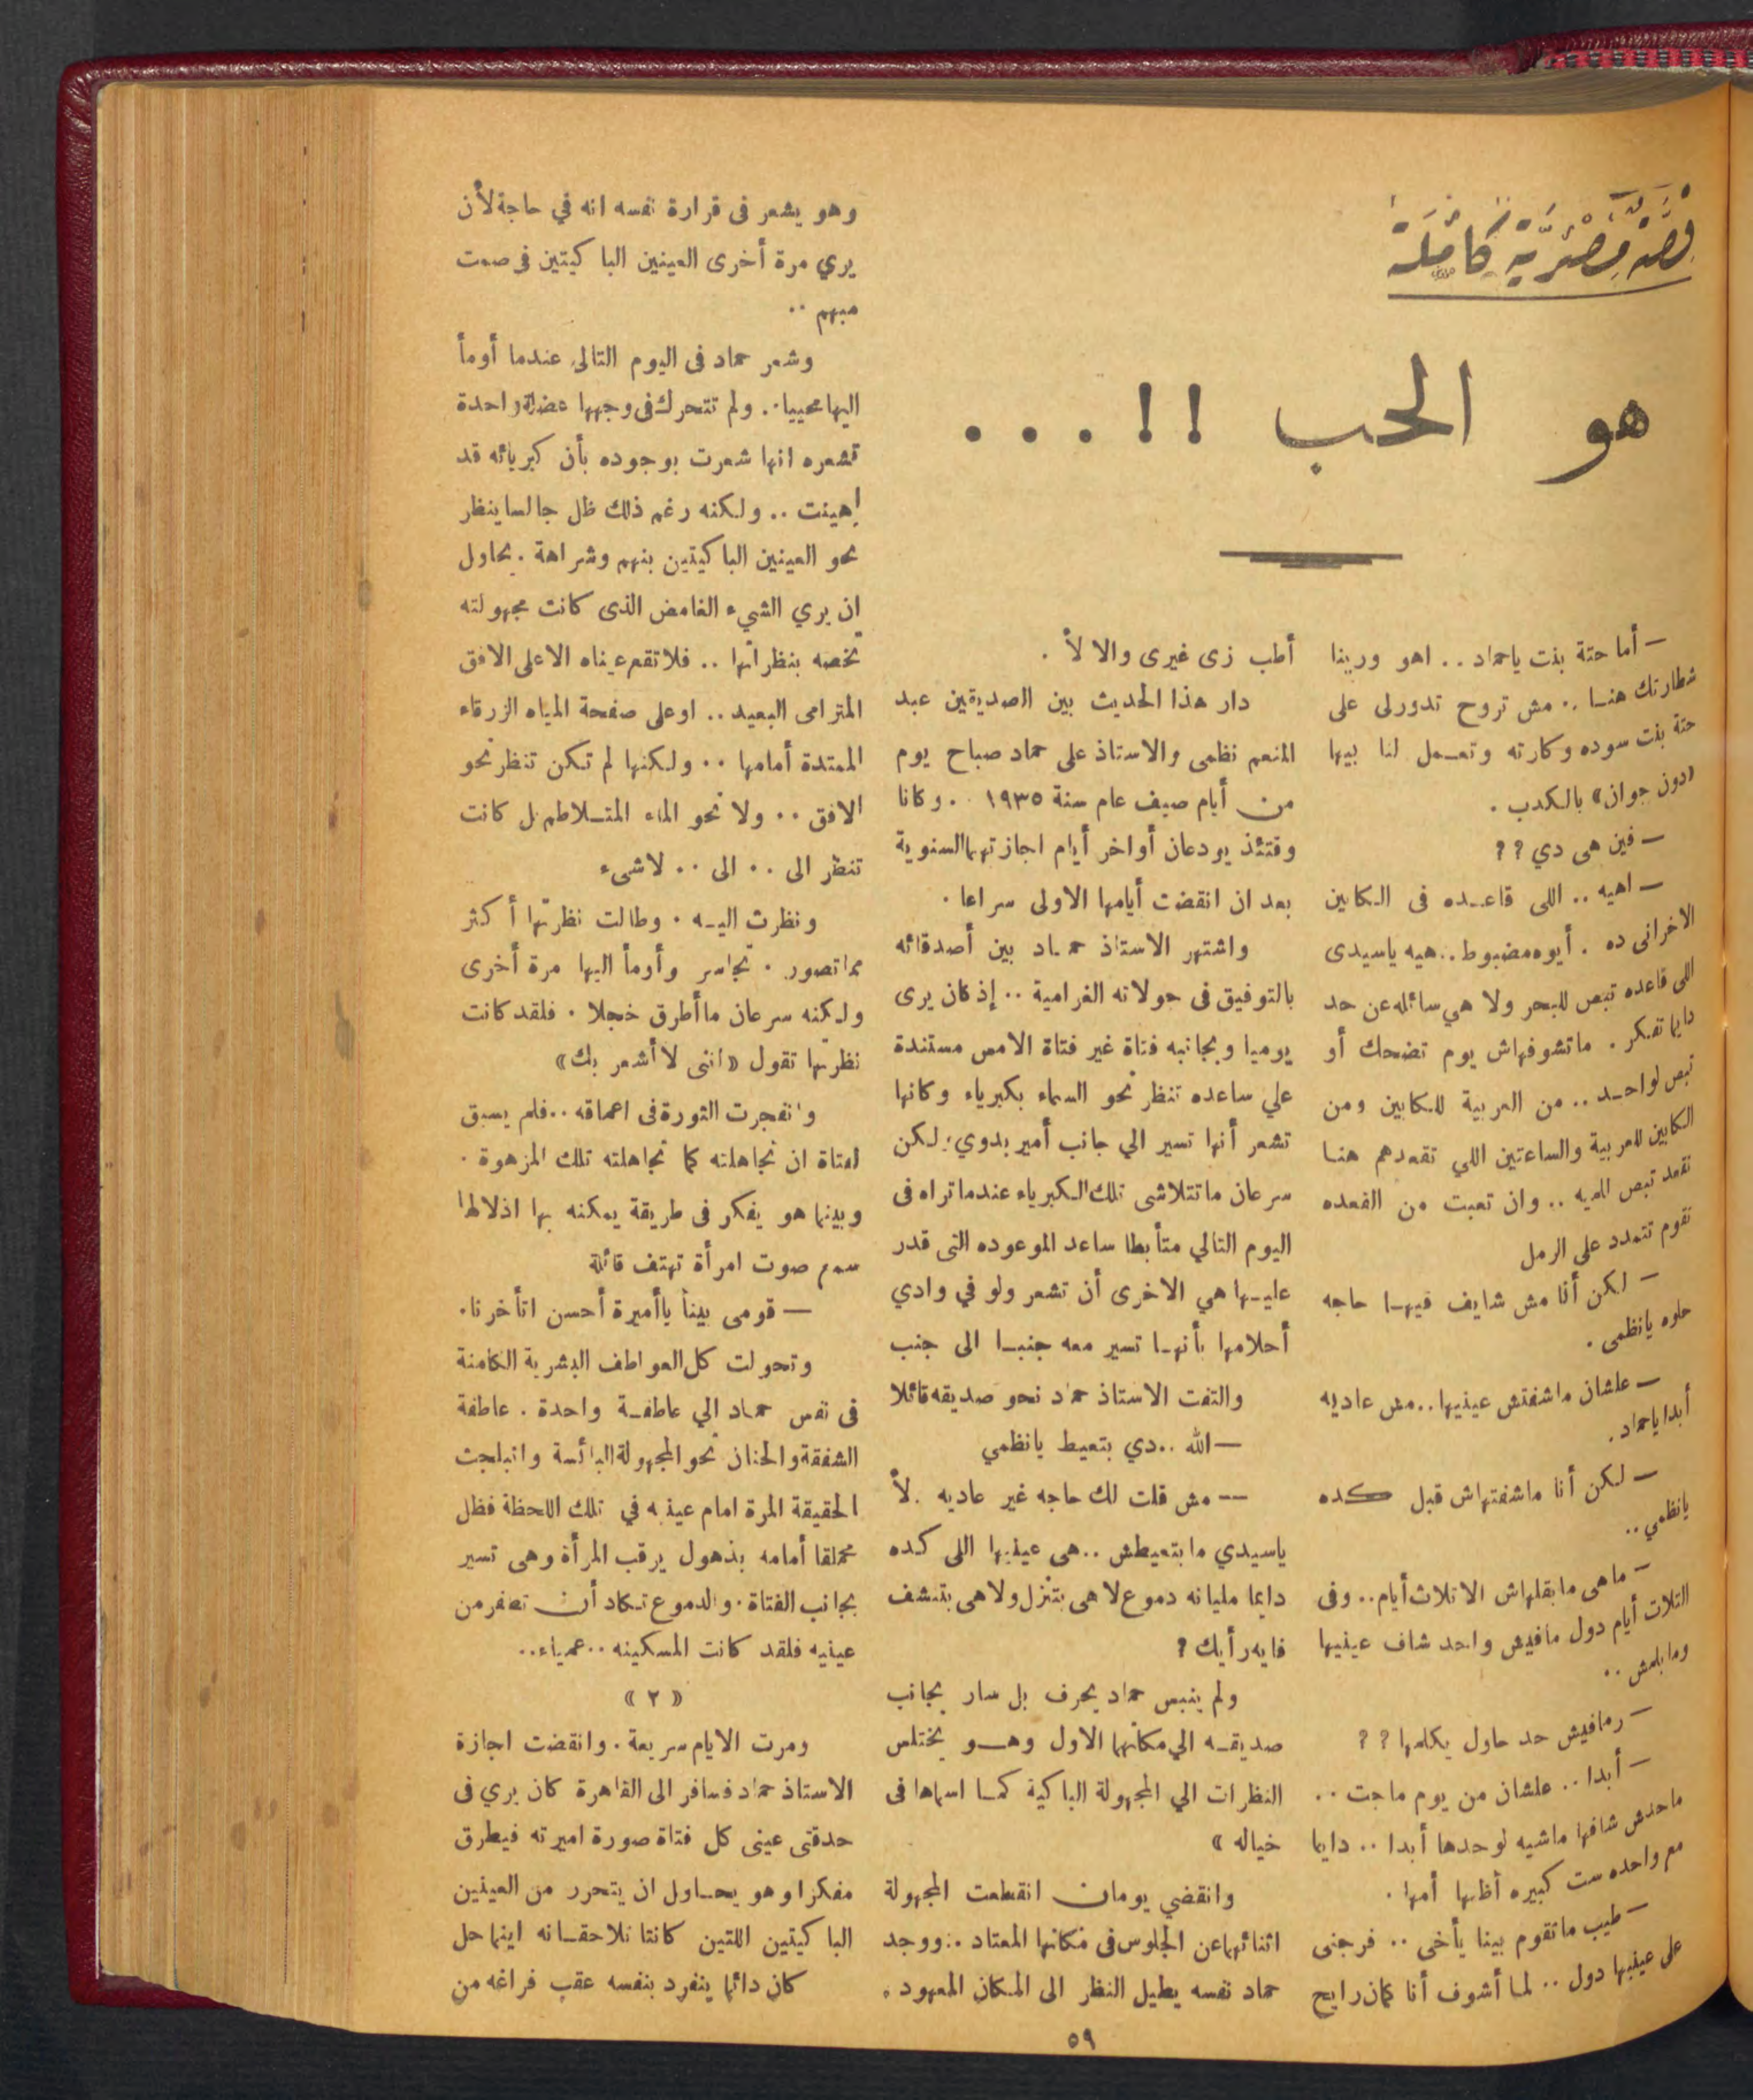 قصة مصرية كاملة
هو الحب !! ...
— أما حتة بنت ياحماد .. اهو ورينا
شطارتك هنا .. مش تروح تدورلى على
حتة بنت سوده وكارته وتعمل لنا بيها
«دون جوان» بالكدب .
— فين هى دي ؟؟
— اهيه .. اللى قاعده فى الكابين
الاخرانى ده . أيوه مضبوط .. هيه ياسيدى
اللى قاعده تبص للبحر ولا هي سائله عن حد
دايما تفكر . ماتشوفهاش يوم تضحك أو
تبص لواحد .. من العربية للكابين ومن
الكابين للعربية والساعتين اللي تقعدهم هنا
تقعد تبص للميه .. وان تعبت من القعده
تقوم تتمدد على الرمل
— لكن أنا مش شايف فيها حاجه
حلوه يانظمى .
— علشان ماشفتش عينيها .. مش عاديه
أبدا ياحماد .
— لكن أنا ماشفتهاش قبل كده
يانظمي ..
— ماهى مابقلهاش الا تلات أيام .. وفى
التلات أيام دول مافيش واحد شاف عينيها
ومابلمش ..
— ومافيش حد حاول يكلمها ؟؟
— أبدا .. علشان من يوم ماجت ..
ماحدش شافها ماشيه لوحدها أبدا .. دايما
مع واحده ست كبيره أظنها أمها .
— طيب ماتقوم بينا يأخى .. فرجنى
على عينيها دول .. لما أشوف أنا كمان رايح
أطب زى غيرى والا لأ .
دار هذا الحديث بين الصديقين عبد
المنعم نظمى والاستاذ على حماد صباح يوم
من أيام صيف عام سنة ١٩٣٥ . وكانا
وقتئذ يودعان أواخر أيام اجازتهما السنوية
بعد ان انقضت أيامها الاولى سراعا .
واشتهر الاستاذ حماد بين أصدقائه
بالتوفيق فى جولاته الغرامية .. إذ كان يرى
يوميا وبجانبه فتاة غير فتاة الامس مستندة
علي ساعده تنظر نحو السماء بكبرياء وكانها
تشعر أنها تسير الي جانب أمير بدوي؛ لكن
سرعان ماتتلاشى تلك الكبرياء عندما تراه فى
اليوم التالي متأبطا ساعد الموعوده التى قدر
عليها هي الاخرى أن تشعر ولو في وادي
أحلامها بأنها تسير معه جنبا الى جنب
والتفت الاستاذ حماد نحو صديقه قائلا
— الله .. دي بتعيط يانظمي
— مش قلت لك حاجه غير عاديه . لأ
ياسيدي مابتعيطش .. هى عينيها اللى كده
دايما مليانه دموع لاهى بتنزل ولاهى بتنشف
فايه رأيك ؟
ولم ينبس حماد بحرف بل سار بجانب
صديقه الي مكانهما الاول وهو يختلس
النظرات الي المجهولة الباكية كما اسماها فى
خياله »
وانقضي يومان انقطعت المجهولة
اثنائهما عن الجلوس فى مكانها المعتاد .. ووجد
حماد نفسه يطيل النظر الى المكان المعهود .
وهو يشعر فى قرارة نفسه انه في حاجة لأن
يري مرة أخرى العينين الباكيتين فى صمت
مبهم ..
وشعر حماد فى اليوم التالى عندما أومأ
اليها محييا .. ولم تتحرك فى وجهها عضلة واحدة
تشعره انها شعرت بوجوده بأن كبريائه قد
اهينت .. ولكنه رغم ذلك ظل جالسا ينظر
نحو العينين الباكيتين بنهم وشراهة . يحاول
ان يري الشيء الغامض الذى كانت مجهولته
تخصه بنظراتها .. فلا تقع عيناه الا على الافق
المترامى البعيد .. او على صفحة المياه الزرقاء
الممتدة أمامها .. ولكنها لم تكن تنظر نحو
الافق .. ولا نحو الماء المتلاطم بل كانت
تنظر الى .. الى .. لاشىء
ونظرت اليه . وطالت نظرتها أكثر
مما تصور . تجاسر وأومأ اليها مرة أخرى
ولكنه سرعان ماأطرق خجلا . فلقد كانت
نظرتها تقول «اننى لا أشعر بك»
وانفجرت الثورة فى اعماقه .. فلم يسبق
لفتاة ان تجاهلته كما تجاهلته تلك المزهوة .
وبينما هو يفكر فى طريقة يمكنه بها اذلالها
سمع صوت امرأة تهتف قائلة
— قومى بينا ياأميرة أحسن اتأخرنا .
وتحولت كل العواطف البشرية الكامنة
فى نفس حماد الي عاطفة واحدة . عاطفة
الشفقة والحنان نحو المجهولة البائسة وانبلجت
الحقيقة المرة امام عينيه في تلك اللحظة فظل
محملقا أمامه بذهول يرقب المرأة وهى تسير
بجانب الفتاة . والدموع تكاد أن تطفر من
عينيه فلقد كانت المسكينه .. عمياء ..
« ٢ »
ومرت الايام سريعة . وانقضت اجازة
الاستاذ حماد فسافر الى القاهرة كان يري فى
حدقتى عينى كل فتاة صورة اميرته فيطرق
مفكرا وهو يحاول ان يتحرر من العينين
الباكيتين اللتين كانتا تلاحقانه اينما حل
كان دائما ينفرد بنفسه عقب فراغه من
٥٩